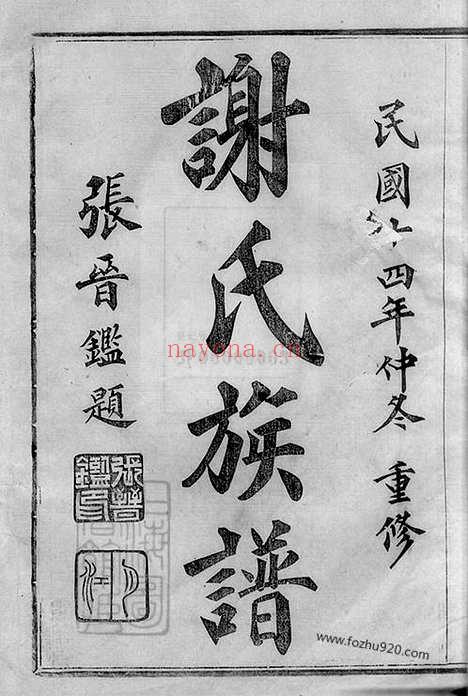 民國四年仲冬 重修
謝氏族譜
張晉鑑題
張晉
鑑印
nayona.cn
www.fozhu920.com